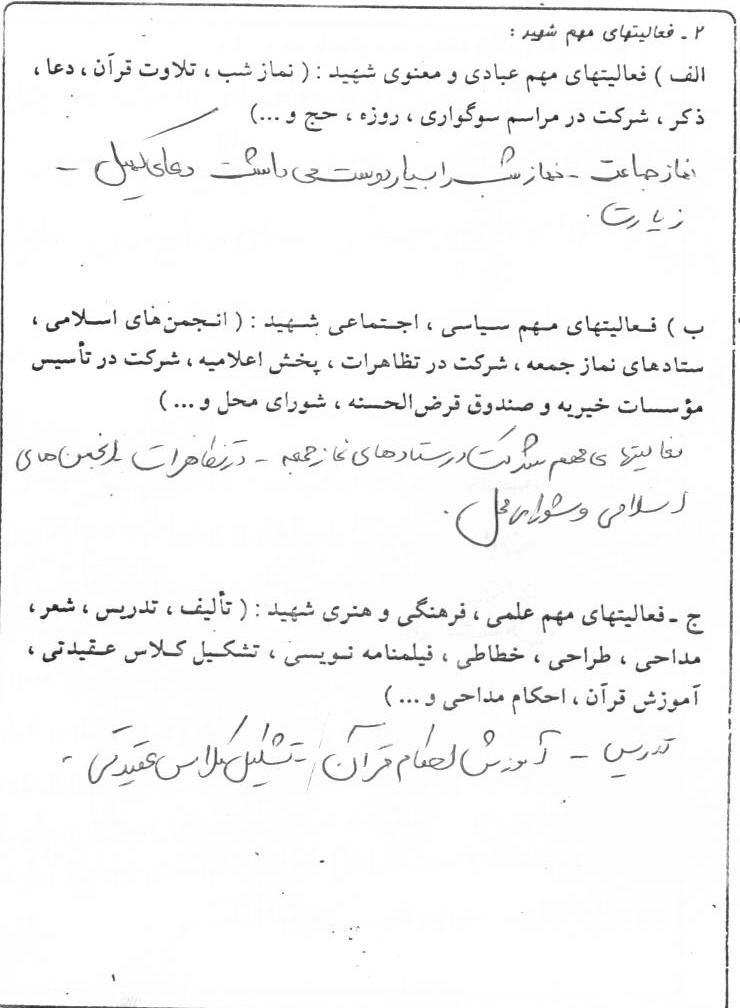 ۲ ـ فعالیتهای مهم شهید :
الف ) فعالیتهای مهم عبادی و معنوی شهید : ( نماز شب ، تلاوت قرآن ، دعا ،
ذکر ، شرکت در مراسم سوگواری ، روزه ، حج و ...)
نماز جماعت - نماز شب را بسیار دوست می داشت دعای کمیل -
زیارت .
ب ) فعالیتهای مهم سیاسی ، اجتماعی شهید : ( انجمن‌های اسلامی ،
ستادهای نماز جمعه ، شرکت در تظاهرات ، پخش اعلامیه ، شرکت در تأسیس
مؤسسات خیریه و صندوق قرض‌الحسنه ، شورای محل و ... )
فعالیتهای مهم شرکت در ستادهای نماز جمعه - در تظاهرات انجمن های
اسلامی و شورای محل .
ج ـ فعالیتهای مهم علمی ، فرهنگی و هنری شهید : ( تألیف ، تدریس ، شعر ،
مداحی ، طراحی ، خطاطی ، فیلمنامه نویسی ، تشکیل کلاس عقیدتی ،
آموزش قرآن ، احکام مداحی و ... )
تدریس - آموزش احکام قرآن - تشکیل کلاس عقیدتی .
۱